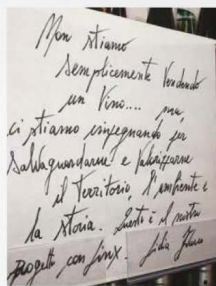 Non stiamo
semplicemente vendendo
un Vino.... ma,
ci stiamo impegnando per
Salvaguardarne e Valorizzarne
il Territorio, l'ambiente e
la storia. Questo è il nostro
progetto con